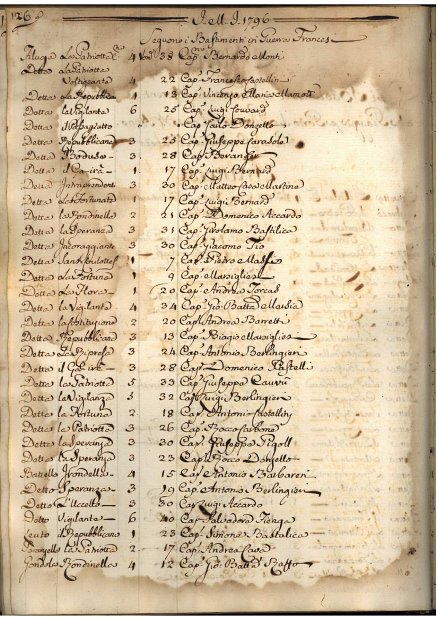 126
A.M.D. 1796
Seguono i Bastimenti in Guerra Francesi
Filuca La Patriotta 4 38 Cap.º Bernardo Monti
Detta La Patriotta
4 22 Cap. Francesco Castellin
Detta La Republica 1 13 Cap. Vincenzo Maria
Detta La Vigilante 6 25 Cap. Luigi
Detta Cap. Paolo Dongello
Detta Republicana 3 23 Cap. Giuseppe Carasole
Detta 3 28 Cap.
Detta Il Cairà 1 17 Cap. Luigi Bernard
Detta Intraprendente 3 30 Cap. Matteo Martino
Detta La Fortunata 1 17 Cap. Luigi Bernard
Detta La Rondinella 2 21 Cap. Domenico Accardo
Detta La Speranza 3 31 Cap. Girolamo Bastilica
Detta Incoraggiante 3 30 Cap. Giacomo Tio
Detta 1 7 Cap. Pietro Massa
Detta La Fortuna 1 9 Cap. Marsigliese
Detta La Flora 1 20 Cap. Andrea Torcas
Detta La Vigilante 4 34 Cap. Gio: Batta Marsia
Detta La 2 20 Cap. Andrea Barretti
Detta Republicana 3 13 Cap. Biagio Marsigliese
Detta La Sorpresa 3 24 Cap. Antonio Berlingieri
Detta il Cairà 3 28 Cap. Domenico Pastelli
Detta La Patriotta 5 33 Cap. Giuseppe Cauvin
Detta La Vigilanza 5 32 Cap. Luigi Berlingieri
Detta La Fortuna 2 18 Cap. Antonio Castellin
Detta La Patriotta 3 26 Cap. Rocco Carbone
Detta La 3 30 Cap. Giuseppe Rigoll
Detta La Speranza 3 23 Cap. Rocco Dongello
Battello Irondella 4 15 Cap. Antonio Barbaren
Detto Speranza 3 19 Cap. Antonio Berlingieri
Detto L'Uccello 3 30 Cap. Luigi Accardo
Detto Vigilante 6 40 Cap. Salvadore
Leuto il Republicano 1 23 Cap. Simone Bastolica
La Patriotta 2 17 Cap. Andrea Cava
Gondola Rondinella 4 12 Cap. Gio: Batta Basso